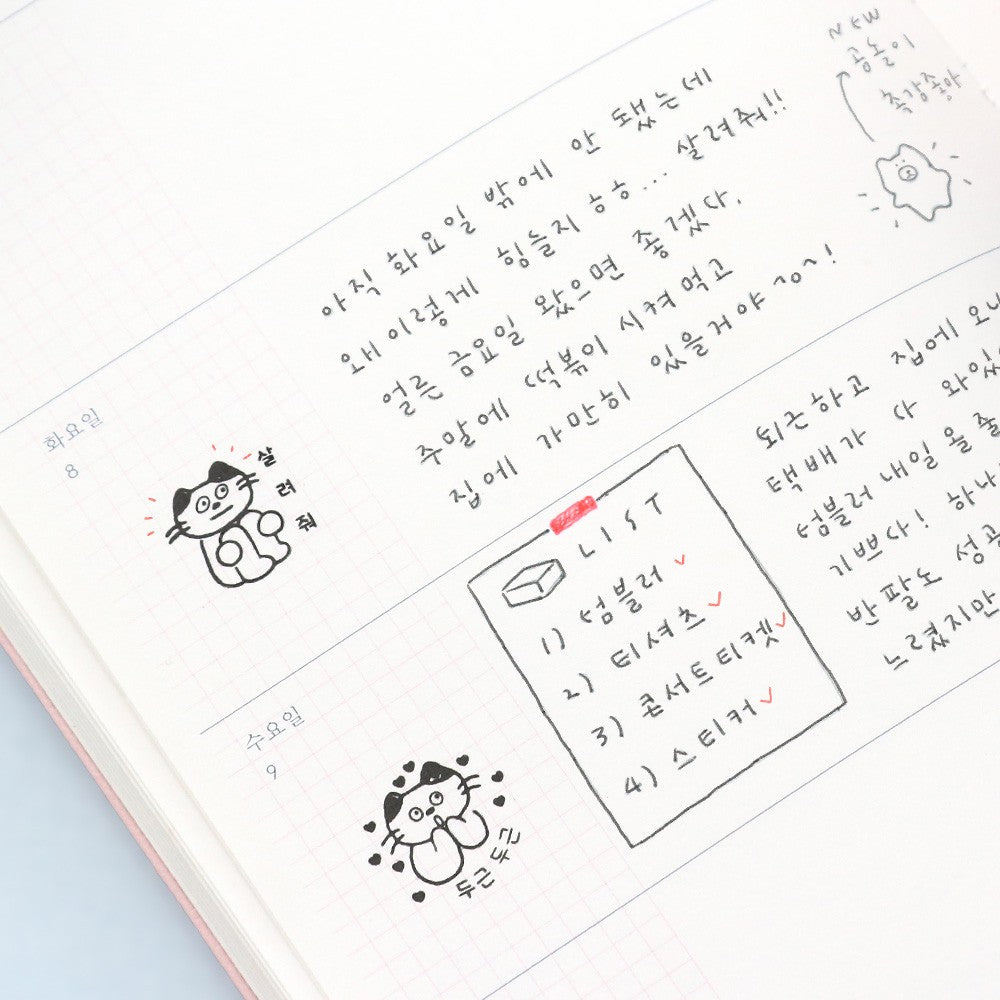 NEW
공놀이
촉감좋아
아직 화요일 밖에 안 됐는데
왜 이렇게 힘들지 ㅎㅎ... 살려줘!!
얼른 금요일 왔으면 좋겠다.
주말에 떡볶이 시켜먹고
집에 가만히 있을거야 ^o^!
화요일
8
살
려
줘
LIST
1) 텀블러
2) 티셔츠
3) 콘서트티켓
4) 스티커
퇴근하고 집에 오니
택배가 다 와있
텀블러 내일 올 줄
기쁘다! 하나
반팔도 성공
느렸지만
수요일
9
두근두근